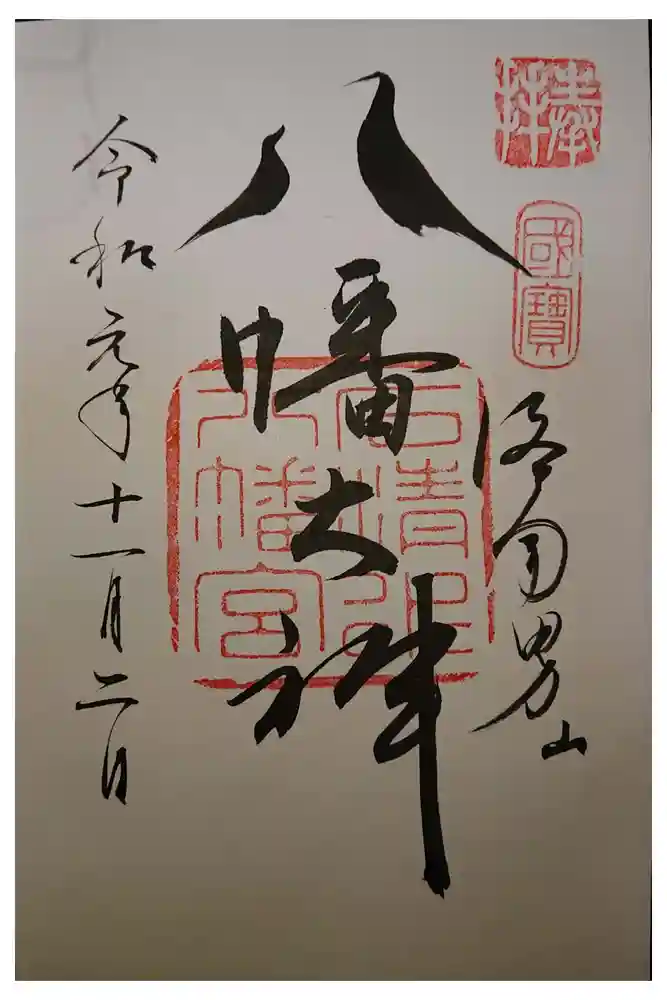 奉拝
國寶
洛南男山
八幡大神
石清水
八幡宮
令和元年十一月二日